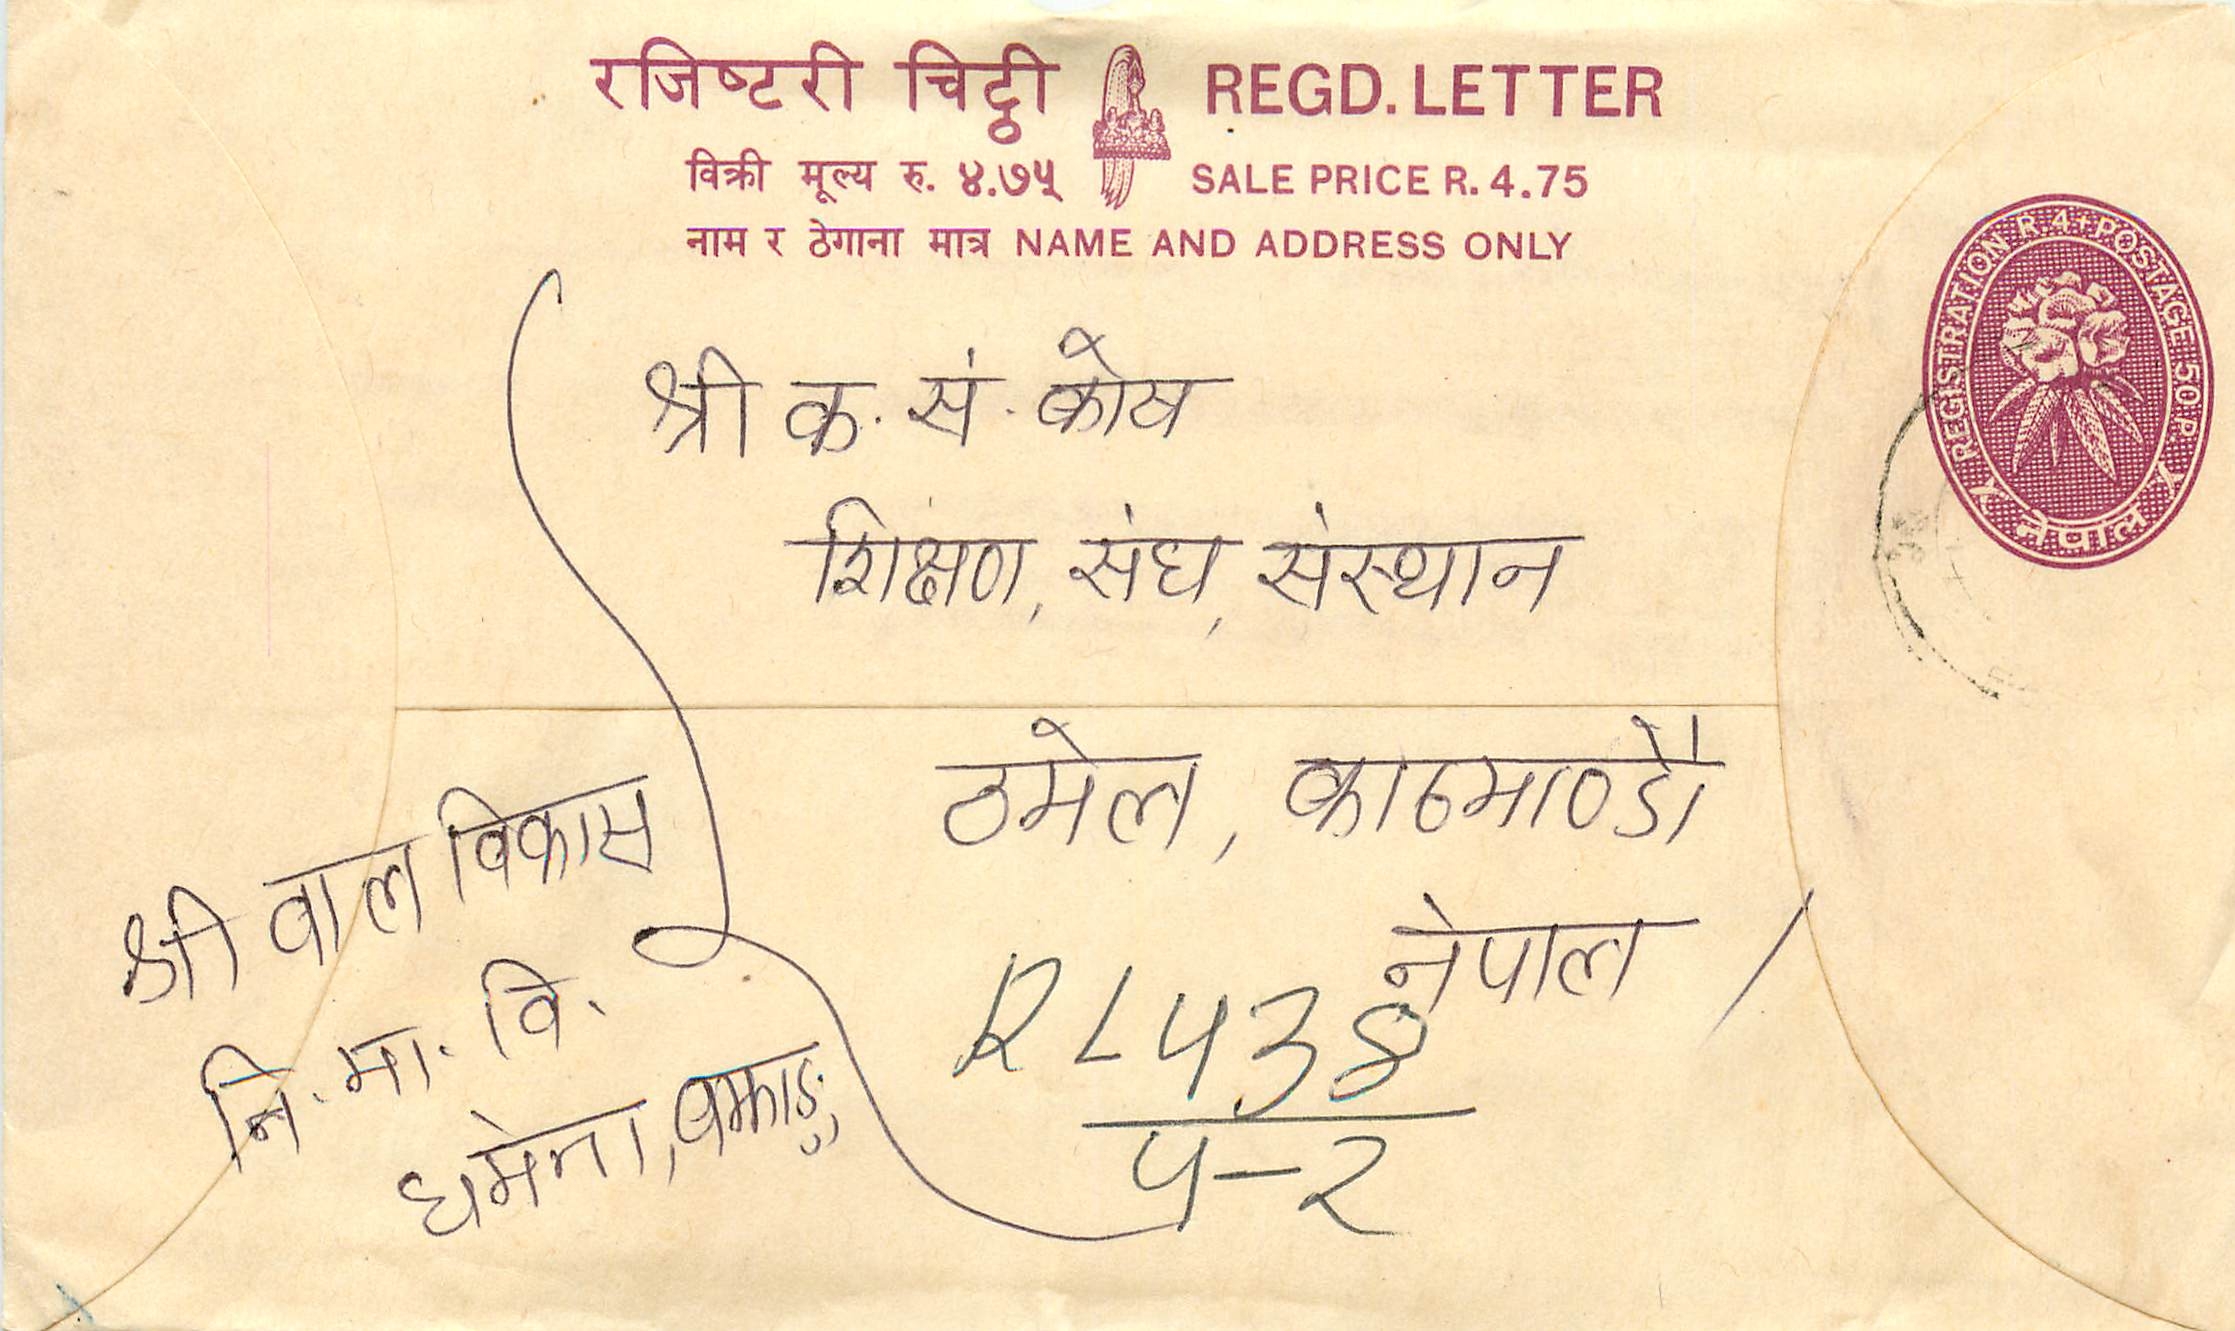 रजिष्टरी चिट्ठी REGD. LETTER
विक्री मूल्य रु. ४.७५ SALE PRICE R. 4.75
नाम र ठेगाना मात्र NAME AND ADDRESS ONLY
REGISTRATION R. 4+POSTAGE 50 P.
नेपाल
श्री क. सं. कोष
शिक्षण, संघ, संस्थान
ठमेल, काठमाण्डौ
नेपाल
श्री वाल विकास
नि. मा. वि.
धमेना, वझाङ
RL ५३४
५-२